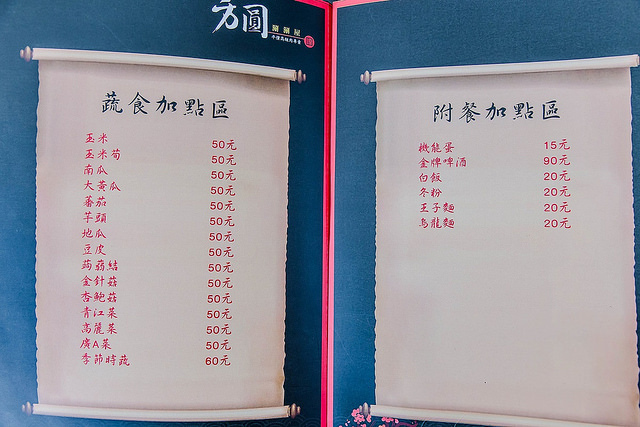 方圓
涮涮屋
蔬食加點區
玉米 50元
玉米筍 50元
南瓜 50元
大黃瓜 50元
蕃茄 50元
芋頭 50元
地瓜 50元
豆皮 50元
蒟蒻結 50元
金針菇 50元
杏鮑菇 50元
青江菜 50元
高麗菜 50元
廣A菜 50元
季節時蔬 60元
附餐加點區
機能蛋 15元
金牌啤酒 90元
白飯 20元
冬粉 20元
王子麵 20元
烏龍麵 20元